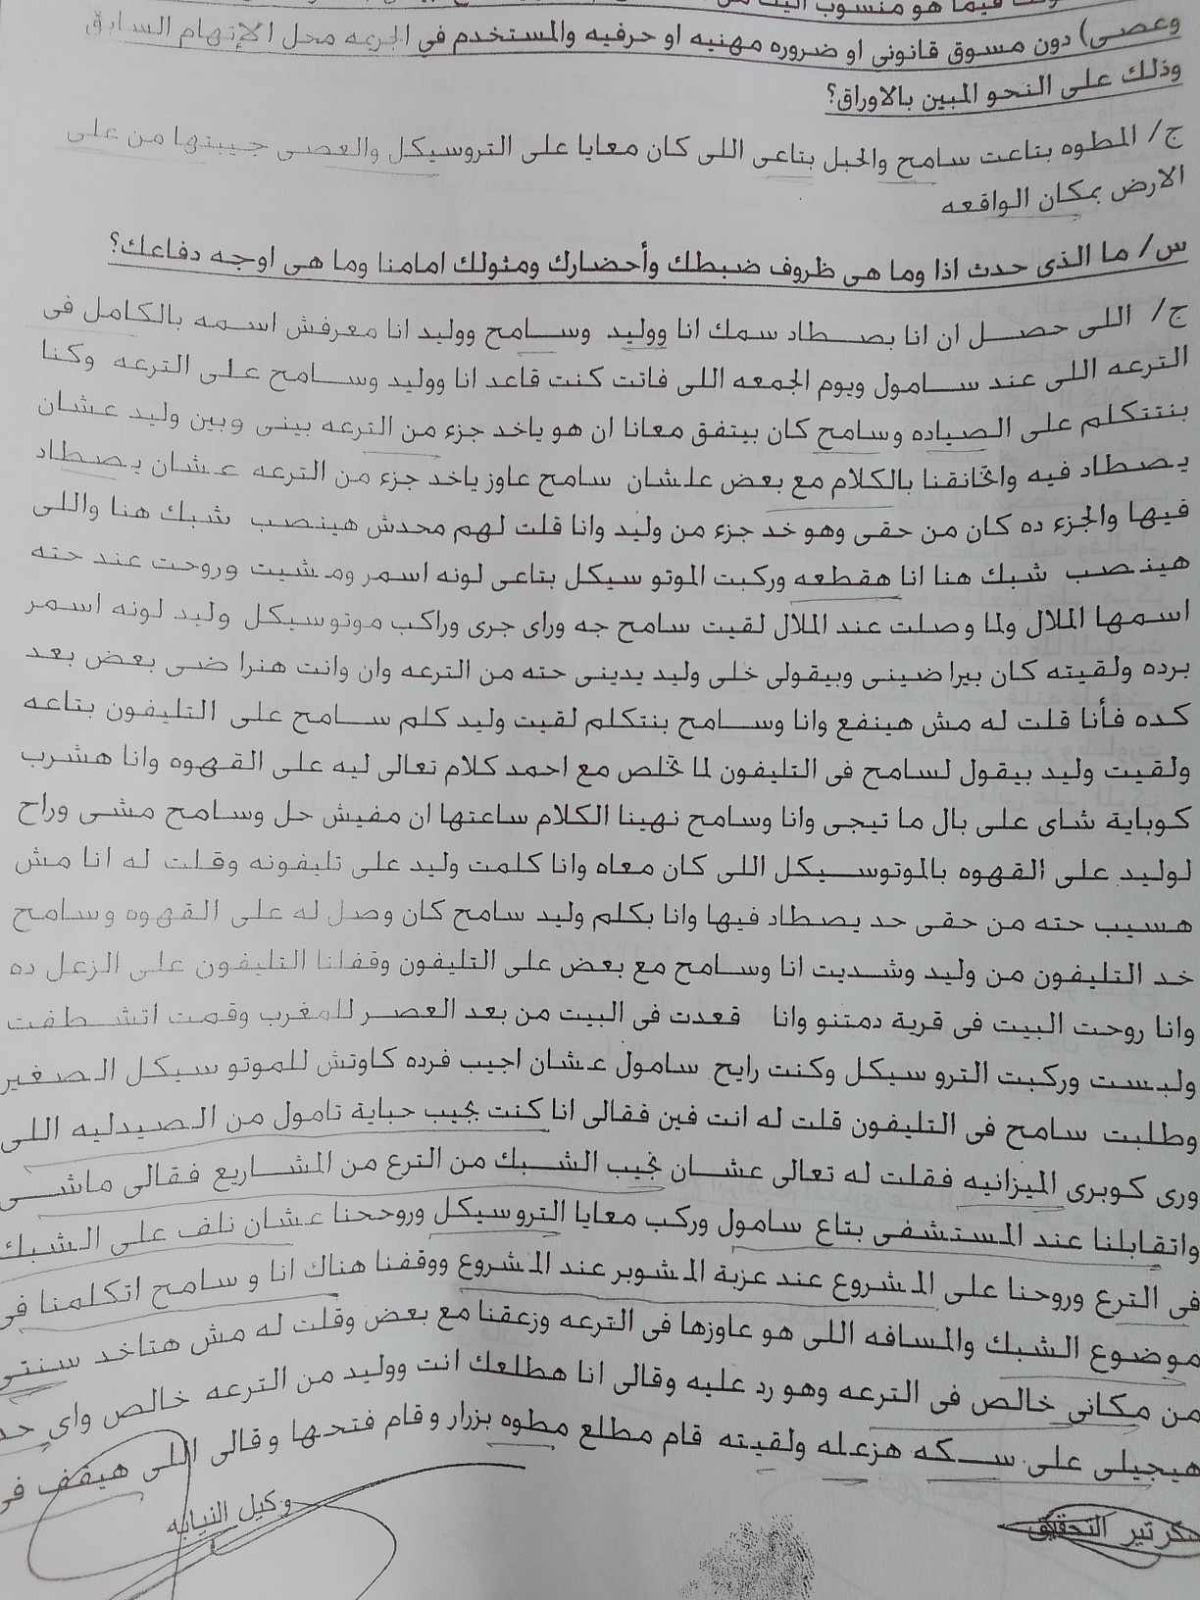 فيما هو منسوب اليك من
وعصى) دون مسوق قانوني او ضروره مهنيه او حرفيه والمستخدم في الجرعه محل الإتهام السابق
وذلك على النحو المبين بالاوراق؟
ج/ المطوه بتاعت سامح والحبل بتاعى اللى كان معايا على التروسيكل والعصى جيبتها من على
الارض بمكان الواقعه
س/ ما الذى حدث اذا وما هى ظروف ضبطك وأحضارك ومثولك امامنا وما هى اوجه دفاعك؟
ج/ اللى حصل ان انا بصطاد سمك انا ووليد وسامح ووليد انا معرفش اسمه بالكامل فى
الترعه اللى عند سامول ويوم الجمعه اللى فاتت كنت قاعد انا ووليد وسامح على الترعه وكنا
بنتتكلم على الصياده وسامح كان بيتفق معانا ان هو ياخد جزء من الترعه بينى وبين وليد عشان
يصطاد فيه واتخانقنا بالكلام مع بعض علشان سامح عاوز ياخد جزء من الترعه عشان يصطاد
فيها والجزء ده كان من حقى وهو خد جزء من وليد وانا قلت لهم محدش هينصب شبك هنا واللى
هينصب شبك هنا انا هقطعه وركبت الموتو سيكل بتاعى لونه اسمر ومشيت وروحت عند حته
اسمها الملال ولما وصلت عند الملال لقيت سامح جه وراى جرى وراكب موتوسيكل وليد لونه اسمر
برده ولقيته كان بيرا ضينى وبيقولى خلى وليد يدينى حته من الترعه وان وانت هنرا ضى بعض بعد
كده فأنا قلت له مش هينفع وانا وسامح بنتكلم لقيت وليد كلم سامح على التليفون بتاعه
ولقيت وليد بيقول لسامح فى التليفون لما تخلص مع احمد كلام تعالى ليه على القهوه وانا هشرب
كوباية شاى على بال ما تيجى وانا وسامح نهينا الكلام ساعتها ان مفيش حل وسامح مشى وراح
لوليد على القهوه بالموتوسيكل اللى كان معاه وانا كلمت وليد على تليفونه وقلت له انا مش
هسيب حته من حقى حد يصطاد فيها وانا بكلم وليد سامح كان وصل له على القهوه وسامح
خد التليفون من وليد وشديت انا وسامح مع بعض على التليفون وقفلنا التليفون على الزعل ده
وانا روحت البيت فى قرية دمتنو وانا قعدت فى البيت من بعد العصر للمغرب وقمت اتشطفت
ولبست وركبت الترو سيكل وكنت رايح سامول عشان اجيب فرده كاوتش للموتو سيكل الصغير
وطلبت سامح فى التليفون قلت له انت فين فقالى انا كنت بجيب حباية تامول من الصيدليه اللى
ورى كوبرى الميزانيه فقلت له تعالى عشان نجيب الشبك من الترع من المشاريع فقالى ماشى
واتقابلنا عند المستشفى بتاع سامول وركب معايا التروسيكل وروححنا عشان نلف على الشبك
فى الترع وروحنا على المشروع عند عزبة المشوبر عند المشروع ووقفنا هناك انا و سامح اتكلمنا فى
موضوع الشبك والمسافه اللى هو عاوزها فى الترعه وزعقنا مع بعض وقلت له مش هتاخد سنتى
من مكانى خالص فى الترعه وهو رد عليه وقالى انا هطلعك انت ووليد من الترعه خالص واى حد
هيجيلى على سكه هزعله ولقيته قام مطلع مطوه بزرار وقام فتحها وقالى اللى هيقف فى
وكيل النيابه
سكرتير التحقيق